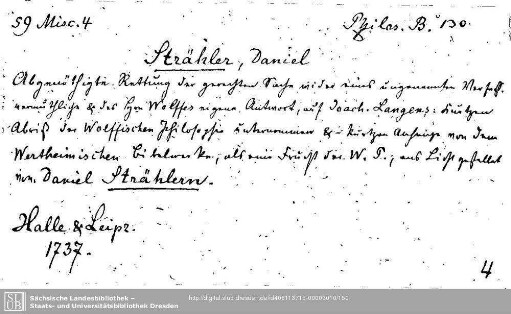 59 Misc. 4
Philos. B. 130.
Strähler, Daniel
Abgenöthigte Rettung der gerechten Sache wider eines ungenannten Verfass.
vermuthliche & des Hrn Wolffes eigene Antwort, auf Joach. Langens: kurtzen
Abriß der Wolffischen Philosophie unternommen & kurtzen Anzeige von dem
Wertheimischen Bibelwerke, als eine Frucht der W. P., ans Licht gestellet
von Daniel Strählern.
Halle & Leipz.
1737.
4
SLUB
Sächsische Landesbibliothek –
Staats- und Universitätsbibliothek Dresden